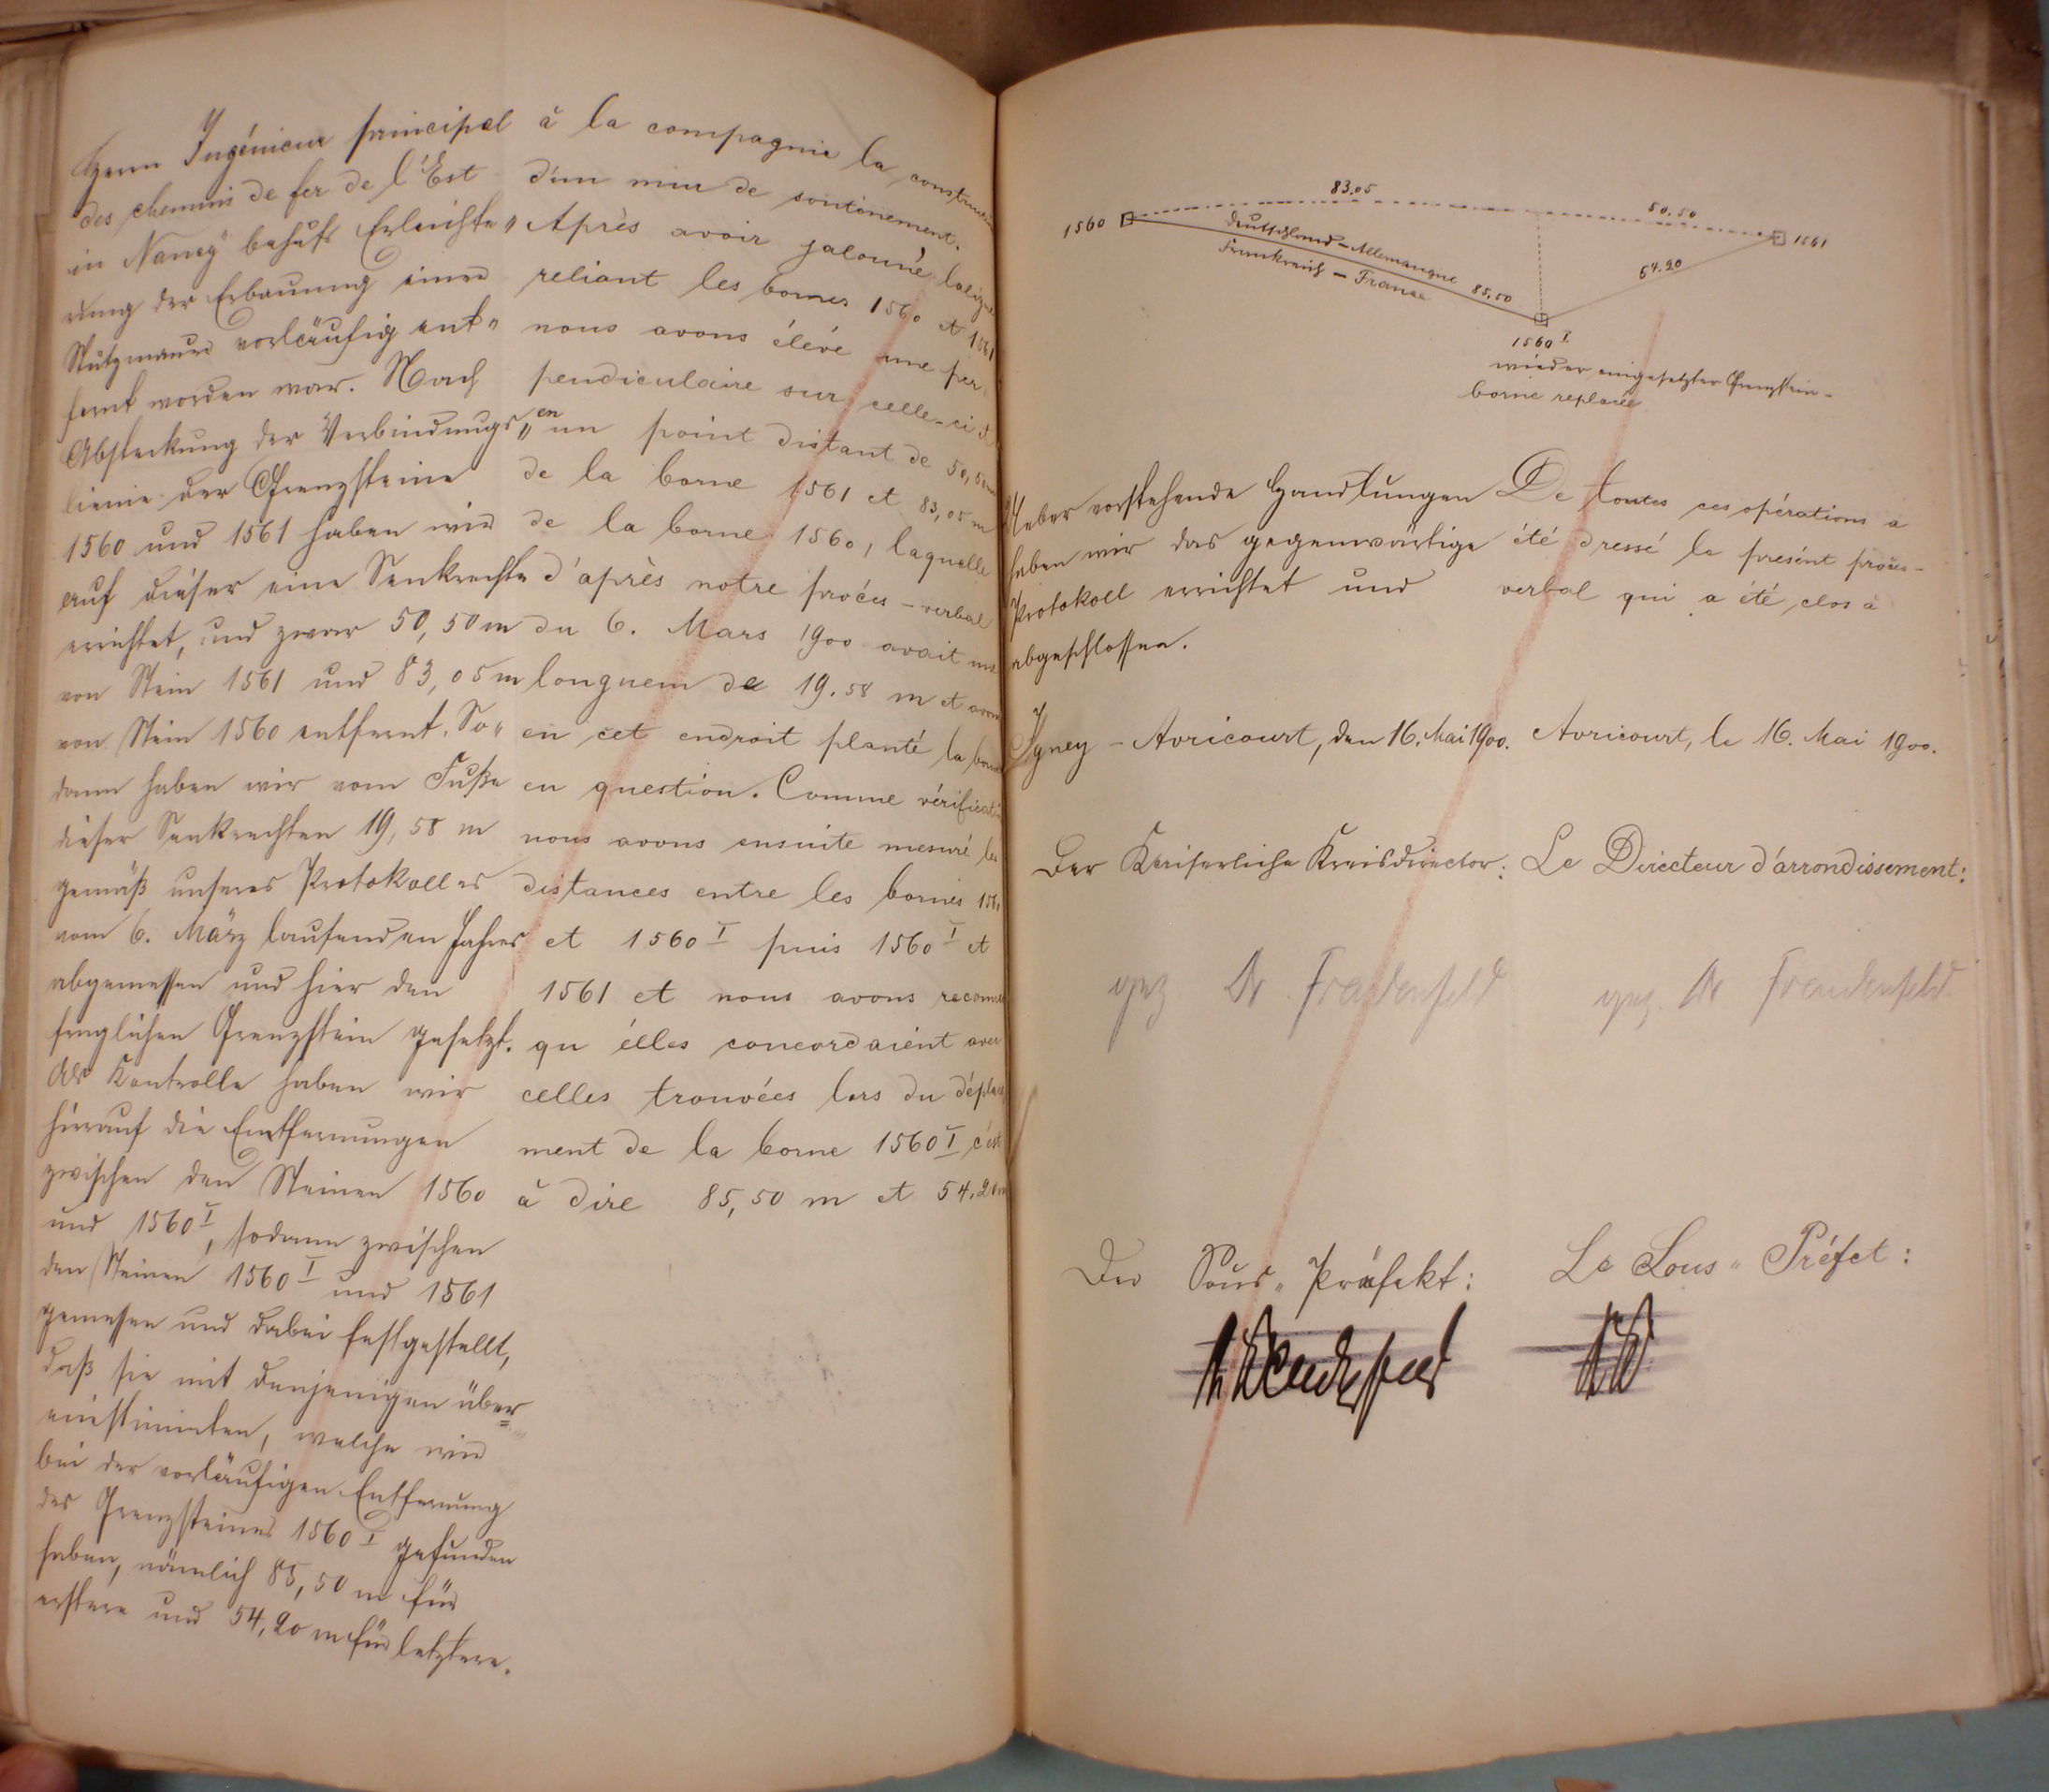 Herrn Ingénieur principal
des chemins de fer de l'Est
in Nancy" behufs Erleichte"
rung der Erbauung einer
Stützmauer vorläufig ent"
fernt worden war. Nach
Absteckung der Verbindungs"
linie der Grenzsteine
1560 und 1561 haben wir
auf dieser eine Senkrechte
errichtet, und zwar 50,50 m
von Stein 1561 und 83,05 m
von Stein 1560 entfernt. So"
dann haben wir vom Fuße
dieser Senkrechten 19,58 m
gemäß unseres Protokolles
vom 6. März laufenden Jahres
abgemessen und hier den
fraglichen Grenzstein gesetzt.
Als Kontrolle haben wir
hierauf die Entfernungen
zwischen den Steinen 1560
und 1560 I, sodann zwischen
den Steinen 1560 I und 1561
gemessen und dabei festgestellt,
daß sie mit denjenigen über=
einstimmten, welche wir
bei der vorläufigen Entfernung
des Grenzsteines 1560 I gefunden
haben, nämlich 85,50 m für
erstere und 54,20 m für letztere.
à la compagnie la construction
d'un mur de soutènement.
Après avoir jalonné la ligne
reliant les bornes 1560 et 1561
nous avons élévé une per
pendiculaire sur celle-ci et
en un point distant de 50,50 m
de la borne 1561 et 83,05 m
de la borne 1560, laquelle
d'après notre procés-verbal
du 6. Mars 1900 avait une
longueur de 19.58 m et avons
en cet endroit planté la borne
en question. Comme vérification
nous avons ensuite mesuré les
distances entre les bornes
et 1560 I puis 1560 I et
1561 et nous avons reconnu
qu'élles concordaient avec
celles trouvées lors du déplace
ment de la borne 1560 I, c'est
à dire 85,50 m et 54.20 m
83.05
50,50
1560
1561
Deutschland - Allemangne 85,50
Frankreich - France
54.20
1560 I
wieder eingesetzter Grenzstein -
borne replacée
Ueber vorstehende Handlungen
haben wir das gegenwärtige
Protokoll errichtet und
abgeschlossen.
De toutes ces opérations a
été dressé le présent procès-
verbal qui a été clos à
Igney - Avricourt, den 16. Mai 1900.
Avricourt, le 16. Mai 1900.
Der Kaiserliche Kreisdirector:
Le Directeur d'arrondissement:
gez Dr. Freudenfeld
gez. Dr Freudenfeld.
Der Sous" Präfekt:
Le Sous" Préfet: